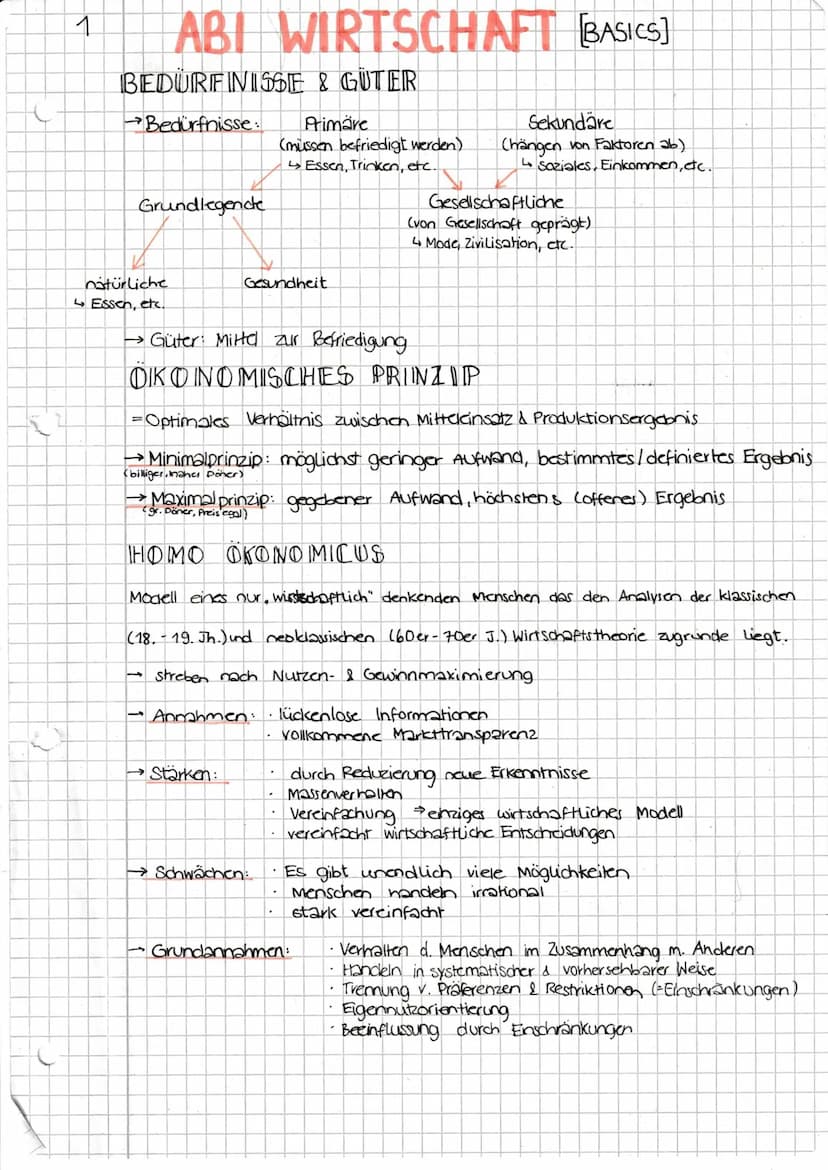 1
ABI WIRTSCHAFT [BASICS]
BEDÜRFNISSE & GÜTER
→ Bedürfnisse: Primäre Sekundäre
(müssen befriedigt werden) (hängen von Faktoren ab)
↳ Essen, Trinken, etc. ↳ Soziales, Einkommen, etc.
Grundlegende Gesellschaftliche
(von Gesellschaft geprägt)
↳ Mode, Zivilisation, etc.
natürliche Gesundheit
↳ Essen, etc.
→ Güter: Mittel zur Befriedigung
ÖKONOMISCHES PRINZIP
= Optimales Verhältnis zwischen Mitteleinsatz & Produktionsergebnis
→ Minimalprinzip: möglichst geringer Aufwand, bestimmtes/definiertes Ergebnis
(billiger, naher Döner)
→ Maximalprinzip: gegebener Aufwand, höchstens (offenes) Ergebnis
(gr. Döner, Preis egal)
HOMO ÖKONOMICUS
Modell eines nur „wirtschaftlich" denkenden Menschen das den Analysen der klassischen
(18. - 19. Jh.) und neoklassischen (60er - 70er J.) Wirtschaftstheorie zugrunde liegt.
→ streben nach Nutzen- & Gewinnmaximierung
→ Annahmen: · lückenlose Informationen
· vollkommene Markttransparenz
→ Stärken: · durch Reduzierung neue Erkenntnisse
· Massenverhalten
· Vereinfachung ⇒ einziges wirtschaftliches Modell
· vereinfacht wirtschaftliche Entscheidungen
→ Schwächen: · Es gibt unendlich viele Möglichkeiten
· Menschen handeln irrational
· stark vereinfacht
→ Grundannahmen: · Verhalten d. Menschen im Zusammenhang m. Anderen
· Handeln in systematischer & vorhersehbarer Weise
· Trennung v. Präferenzen & Restriktionen (=Einschränkungen)
· Eigennutzorientierung
· Beeinflussung durch Enschränkungen